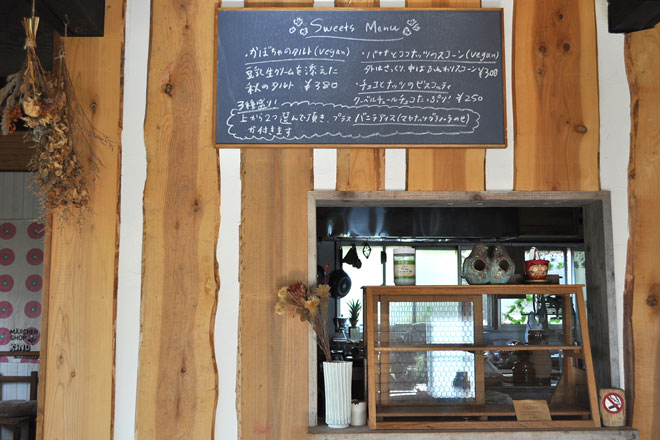 Sweets Menu
・かぼちゃのタルト(vegan)
豆乳生クリームを添えた
秋のタルト ¥380
・バナナとココナッツのスコーン(vegan)
外はさっくり、中はふんわりスコーン¥300
・チョコとナッツのビスコッティ
クーベルチュールチョコたっぷり! ¥250
3種盛り!
上から2つ選んで頂き、プラス バニラアイス(マカナッツグラノーラのせ)
が付きます
MÄRCHEN
SHOP
KIND